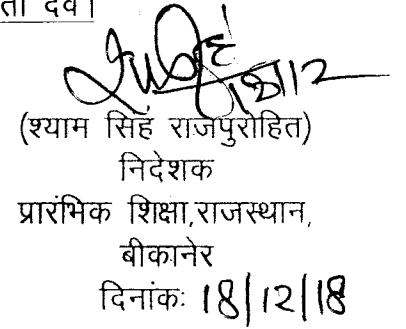 देवे।
(श्याम सिंह राजपुरोहित)
निदेशक
प्रारंभिक शिक्षा,राजस्थान,
बीकानेर
दिनांकः 18/12/18